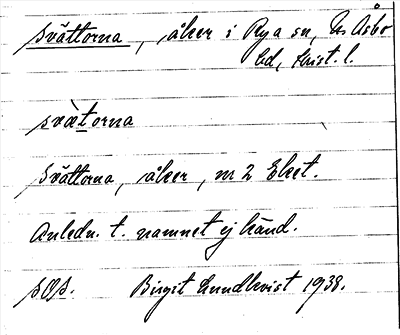 Svättorna, åker i Rya sn, N. Åsbo
hd, Krist. l.
svætorna
Svättorna, åker, nr 2 Eket.
Anledn. t. namnet ej känd.
Birgit Lundkvist 1938.